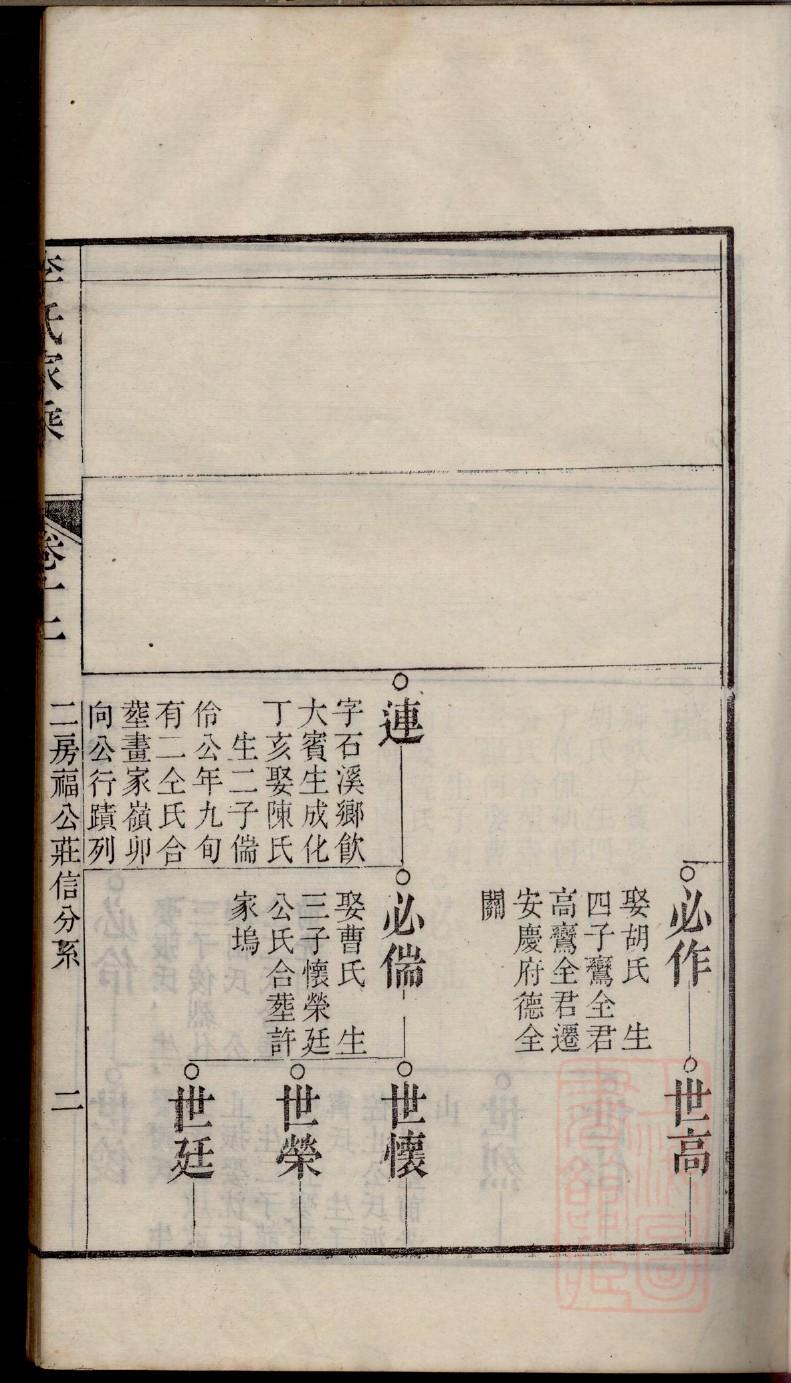 必作
娶胡氏　生
四子鸞全君
高鸞全君遷
安慶府德全
關
世高
連
字石溪鄉飲
大賓生成化
丁亥娶陳氏
生二子偳
伶公年九旬
有二仝氏合
塟畫家嶺卯
向公行蹟列
必偳
娶曹氏　生
三子懷榮廷
公氏合塟許
家塢
世懷
世榮
世廷
李氏家乘
卷十二
二房福公莊信分系
二